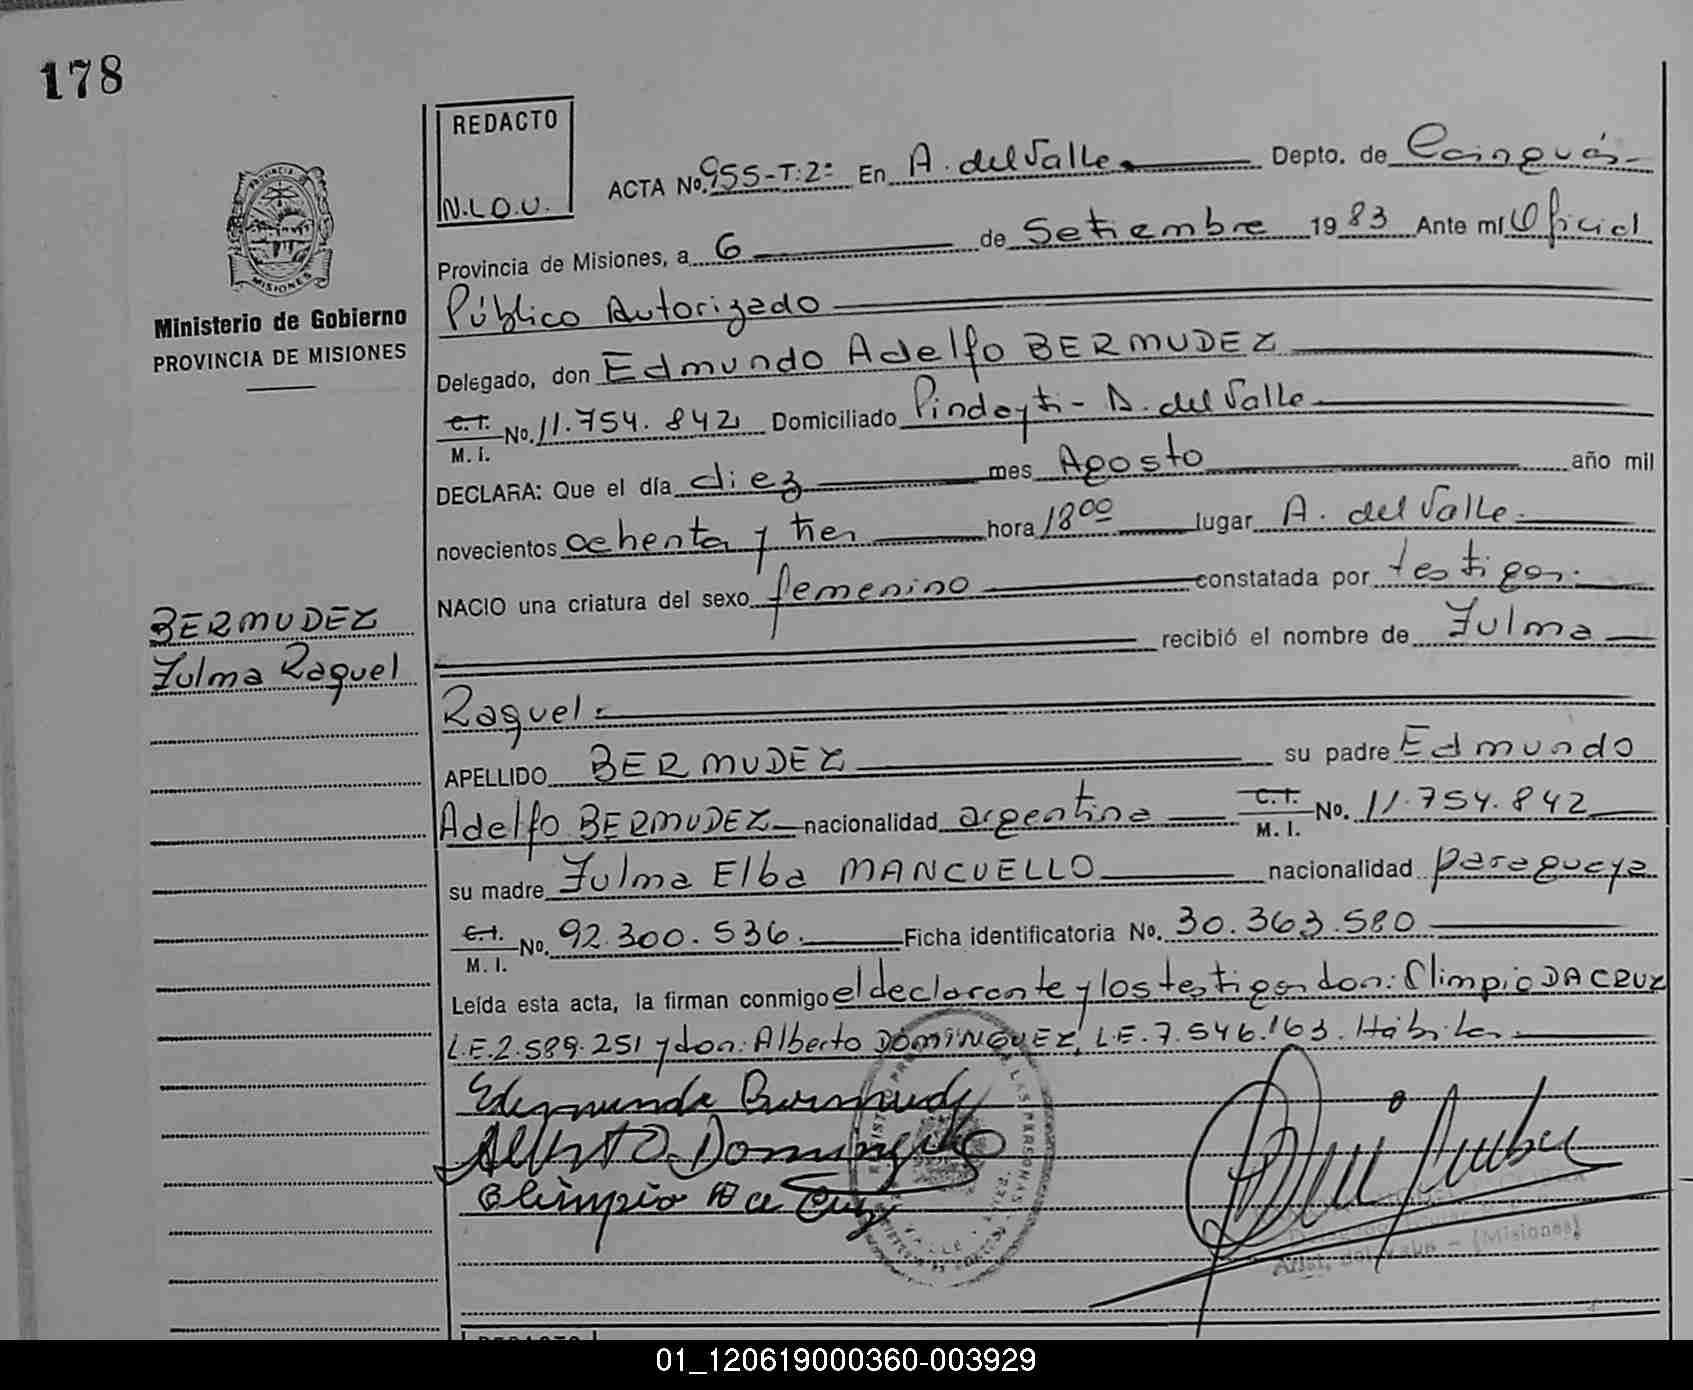 178
REDACTO
N.L.O.U.
ACTA No. 955-T:2º En A. del Valle Depto. de Cainguás
Provincia de Misiones, a 6 de Setiembre 1983 Ante mí Oficial
Público Autorizado
Delegado, don Edmundo Adelfo BERMUDEZ
C.I. M.I. No. 11.754.842 Domiciliado Pindayti - A. del Valle
DECLARA: Que el día diez mes Agosto año mil
novecientos ochenta y tres hora 18 00 lugar A. del Valle
NACIO una criatura del sexo femenino constatada por testigos
recibió el nombre de Zulma
Raquel
APELLIDO BERMUDEZ su padre Edmundo
Adelfo BERMUDEZ nacionalidad argentina C.I. M.I. No. 11.754.842
su madre Zulma Elba MANCUELLO nacionalidad paraguaya
C.I. M.I. No. 92.300.536 Ficha identificatoria No. 30.363.580
Leída esta acta, la firman conmigo el declarante y los testigos don: Olimpio DA CRUZ
L.E. 2.589.251 y don: Alberto DOMINGUEZ, L.E. 7.546.163. Hábiles
Edmundo Bermudez
Alberto Dominguez
Olimpio Da Cruz
PROVINCIA DE
MISIONES
Ministerio de Gobierno
PROVINCIA DE MISIONES
BERMUDEZ
Zulma Raquel
LAS PERSONAS
(Misiones)
01_120619000360-003929